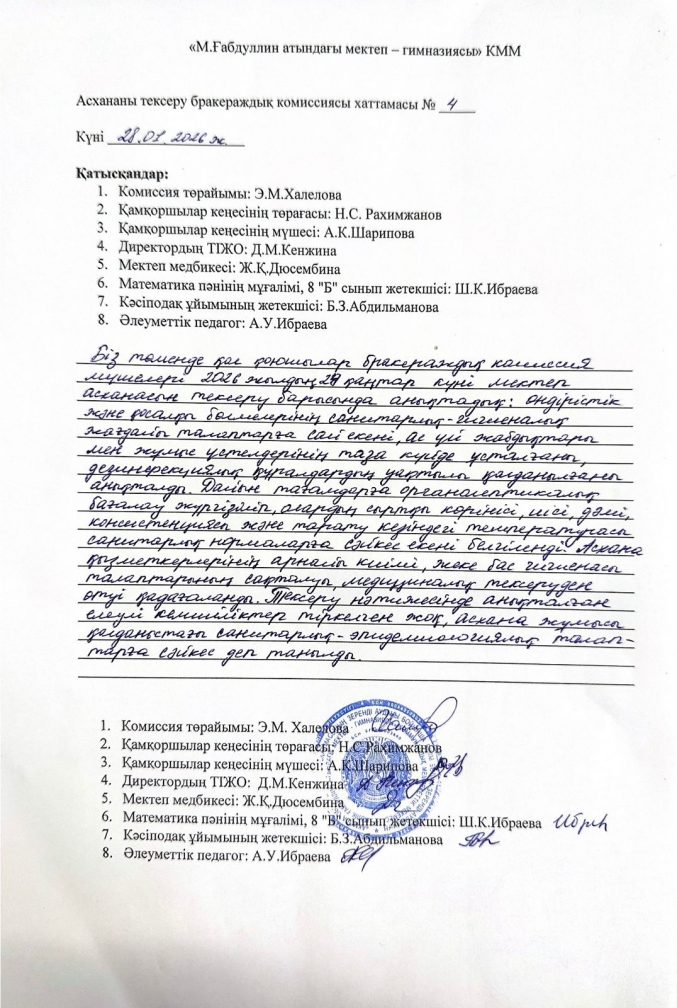 «М.Ғабдуллин атындағы мектеп – гимназиясы» КММ
Асхананы тексеру бракераждық комиссиясы хаттамасы № 4
Күні 28.01.2026 ж.
Қатысқандар:
1. Комиссия төрайымы: Э.М.Халелова
2. Қамқоршылар кеңесінің төрағасы: Н.С. Рахимжанов
3. Қамқоршылар кеңесінің мүшесі: А.К.Шарипова
4. Директордың ТІЖО: Д.М.Кенжина
5. Мектеп медбикесі: Ж.Қ.Дюсембина
6. Математика пәнінің мұғалімі, 8 "Б" сынып жетекшісі: Ш.К.Ибраева
7. Кәсіподақ ұйымының жетекшісі: Б.З.Абдильманова
8. Әлеуметтік педагог: А.У.Ибраева
Біз төменде қол қоюшылар бракераждық комиссия
мүшелері 2026 жылдың 29 қаңтар күні мектеп
асханасын тексеру барысында анықтадық: өндірістік
және қосалқы бөлмелерінің санитарлық-гигиеналық
жағдайы талаптарға сай екені, ас үй жабдықтары
мен жұмыс үстелдерінің таза күйде ұсталғаны,
дезинфекциялық құралдардың уақтылы қолданылғаны
анықталды. Дайын тағамдарға органолептикалық
бағалау жүргізіліп, олардың сыртқы көрінісі, иісі, дәмі,
консистенциясы және тарату кезіндегі температурасы
санитарлық нормаларға сәйкес екені белгіленді. Асхана
қызметкерлерінің арнайы киімі, жеке бас гигиенасы
талаптарының сақталуы, медициналық тексеруден
өтуі қадағаланды. Тексеру нәтижесінде анықталған
елеулі кемшіліктер тіркелген жоқ, асхана жұмысы
қолданыстағы санитарлық-эпидемиологиялық талап-
тарға сәйкес деп танылды.
1. Комиссия төрайымы: Э.М. Халелова
2. Қамқоршылар кеңесінің төрағасы: Н.С.Рахимжанов
3. Қамқоршылар кеңесінің мүшесі: А.К.Шарипова
4. Директордың ТІЖО: Д.М.Кенжина
5. Мектеп медбикесі: Ж.Қ.Дюсембина
6. Математика пәнінің мұғалімі, 8 "Б" сынып жетекшісі: Ш.К.Ибраева
7. Кәсіподақ ұйымының жетекшісі: Б.З.Абдильманова
8. Әлеуметтік педагог: А.У.Ибраева